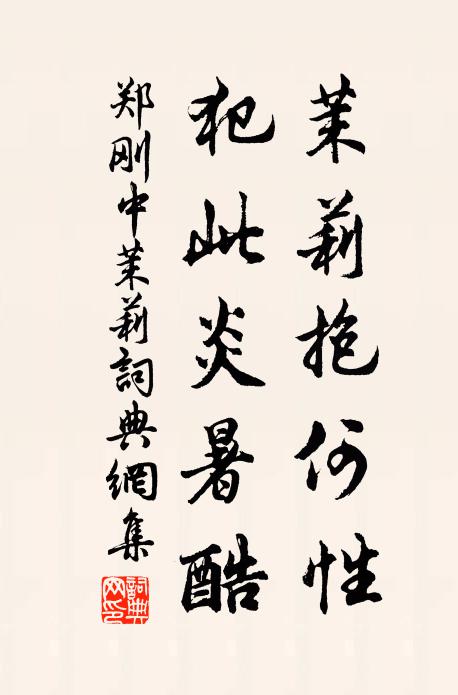 茉莉抱何性
犯此炎暑酷
郑刚中茉莉詞典網集
詞典网印